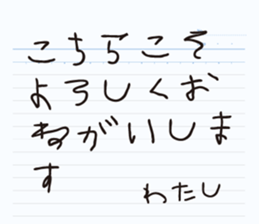 こちらこそ
よろしくお
ねがいしま
す
わたし